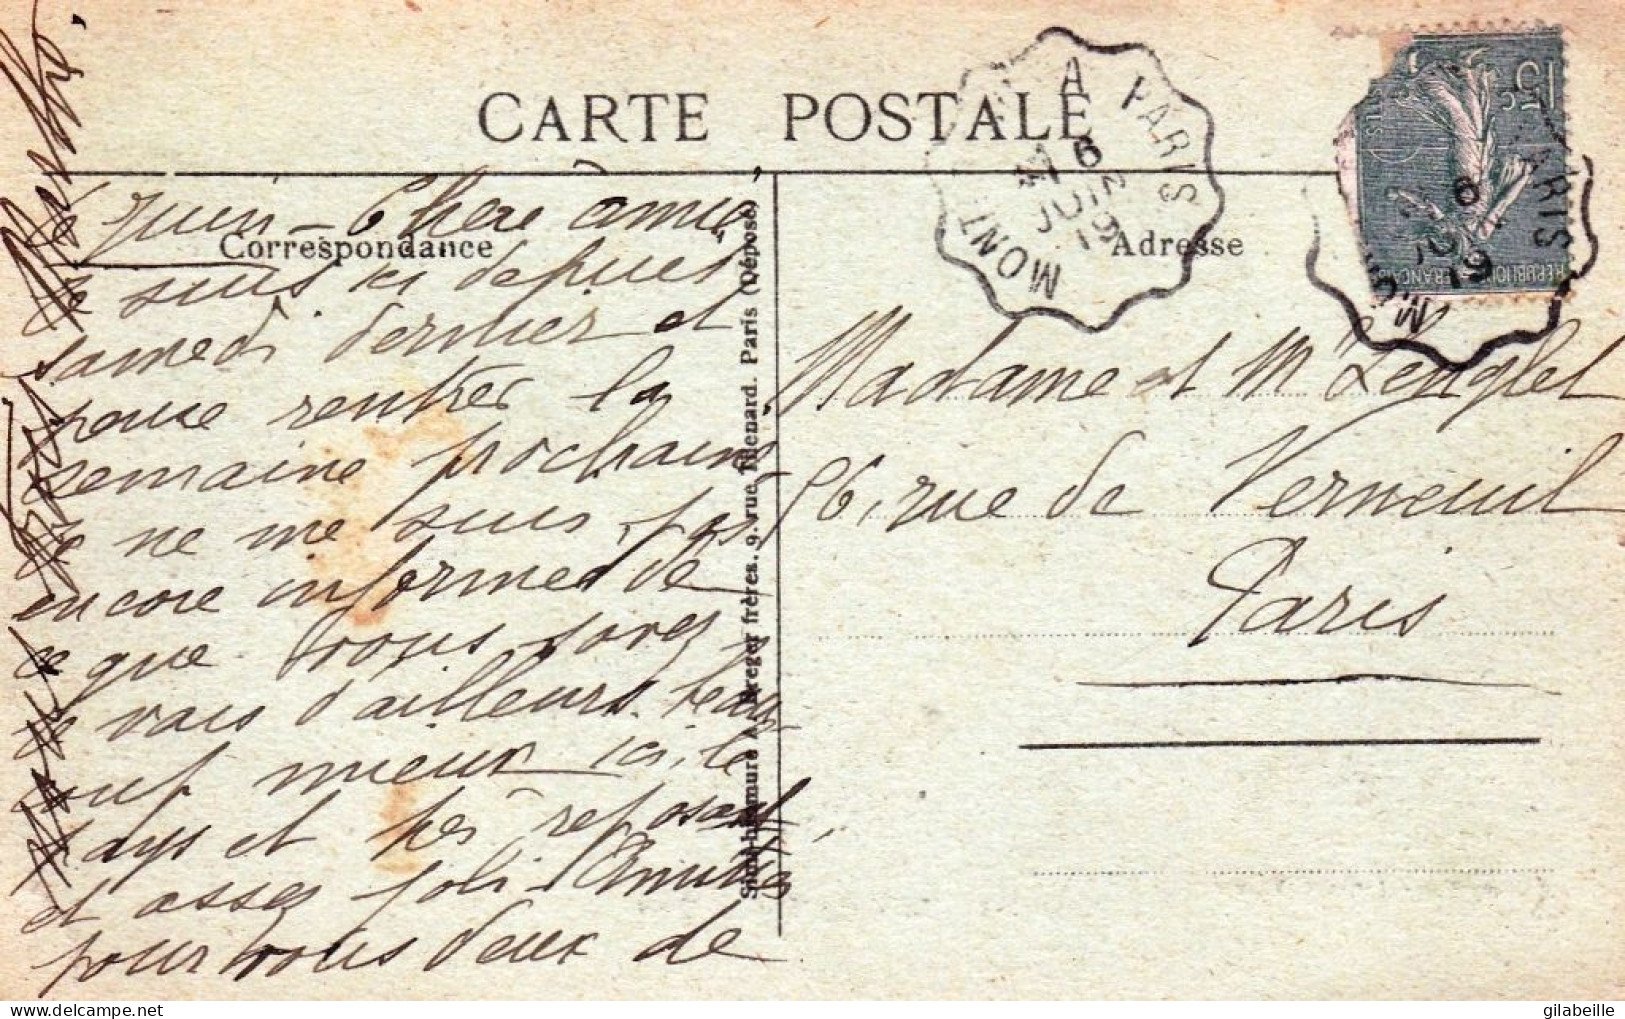 CARTE POSTALE
Correspondance
Adresse
6 Juin - Chère amie
Je suis ici depuis
samedi dernier et
pense rentrer la
semaine prochaine
Je ne me suis pas
encore informée de
ce que vous savez
Je vais d'ailleurs beau
coup mieux ici, le
pays et très reposant
et assez joli - Amitiés
pour vous deux de
Madame et Mr Lenglet
56, rue de Verneuil
Paris
Similibromure A. Breger frères. 9. rue Thénard. Paris (Déposé)
A PARIS
MONT
6
19
15c
REPUBLIQUE FRANÇAISE
PARIS
6
19
delcampe.net
gilabeille